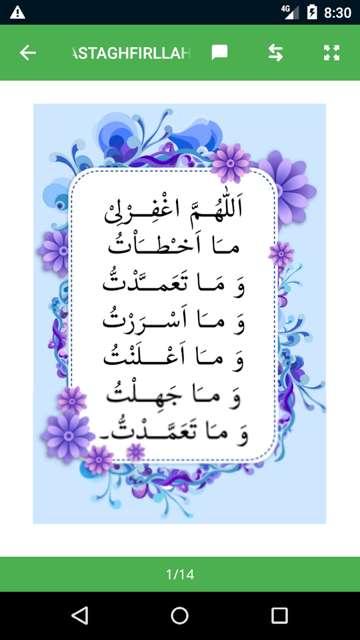 4G 8:30
ASTAGHFIRLLAH
اَللّٰهُمَّ اغْفِرْلِیْ
مَا اَخْطَاْتُ
وَ مَا تَعَمَّدْتُّ
وَ مَا اَسْرَرْتُ
وَ مَا اَعْلَنْتُ
وَ مَا جَهِلْتُ
وَ مَا تَعَمَّدْتُّ۔
1/14